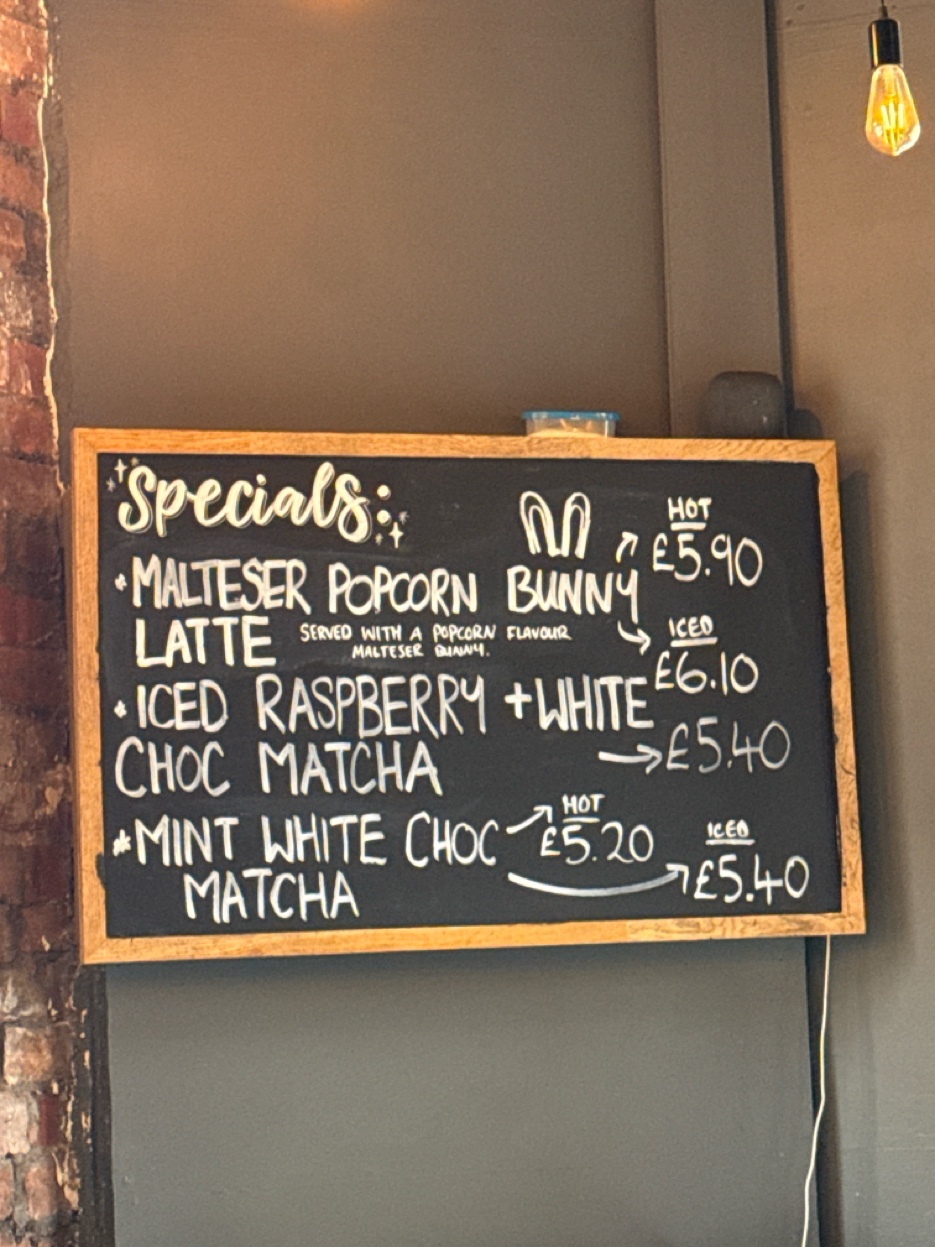 Specials:
HOT
£5.90
* MALTESER POPCORN BUNNY
LATTE SERVED WITH A POPCORN FLAVOUR
MALTESER BUNNY.
ICED
£6.10
* ICED RASPBERRY + WHITE
CHOC MATCHA → £5.40
* MINT WHITE CHOC
MATCHA
HOT
£5.20
ICED
£5.40